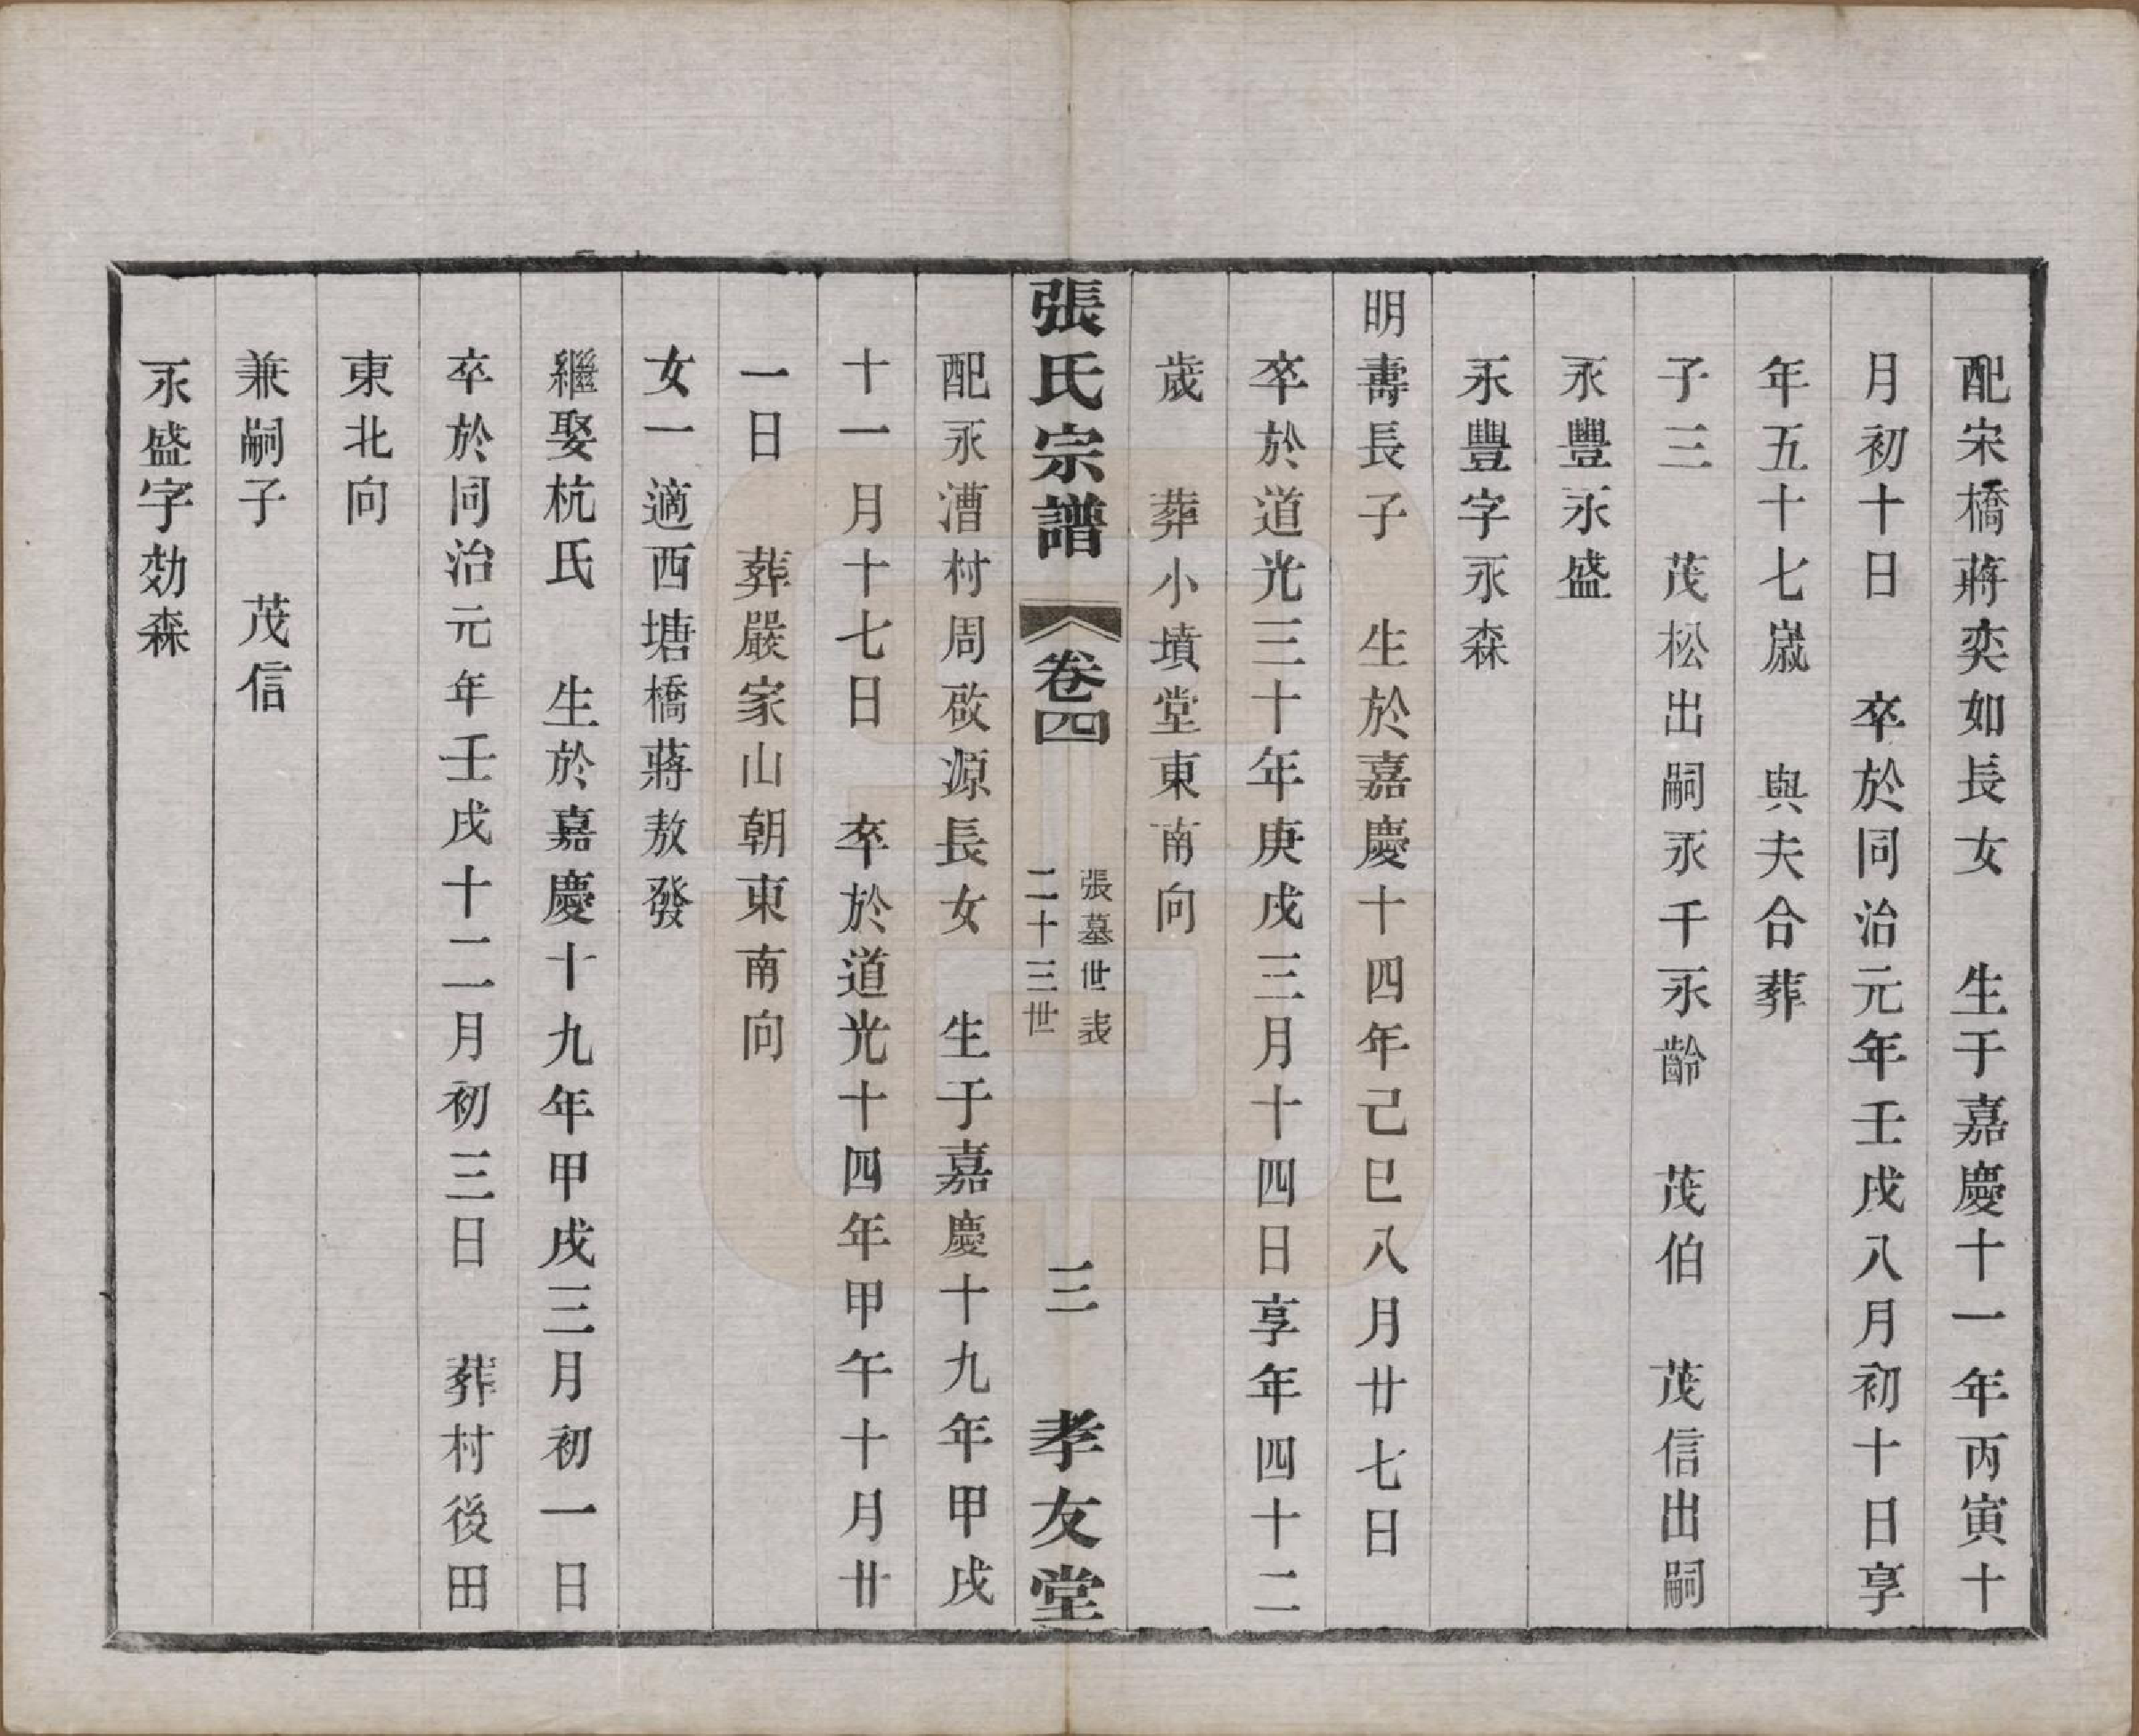 配宋橋蔣奕如長女　生于嘉慶十一年丙寅十
月初十日　卒於同治元年壬戌八月初十日享
年五十七歲　與夫合葬
子三　茂松出嗣永千永齡　茂伯　茂信出嗣
永豐永盛
永豐字永森
明壽長子　生於嘉慶十四年己巳八月廿七日
卒於道光三十年庚戌三月十四日享年四十二
歲　葬小墳堂東南向
張氏宗譜　卷四　張墓世表　二十三世　三　孝友堂
配永漕村周啟源長女　生于嘉慶十九年甲戌
十一月十七日　卒於道光十四年甲午十月廿
一日　葬嚴家山朝東南向
女一適西塘橋蔣敖發
繼娶杭氏　生於嘉慶十九年甲戌三月初一日
卒於同治元年壬戌十二月初三日　葬村後田
東北向
兼嗣子　茂信
永盛字効森